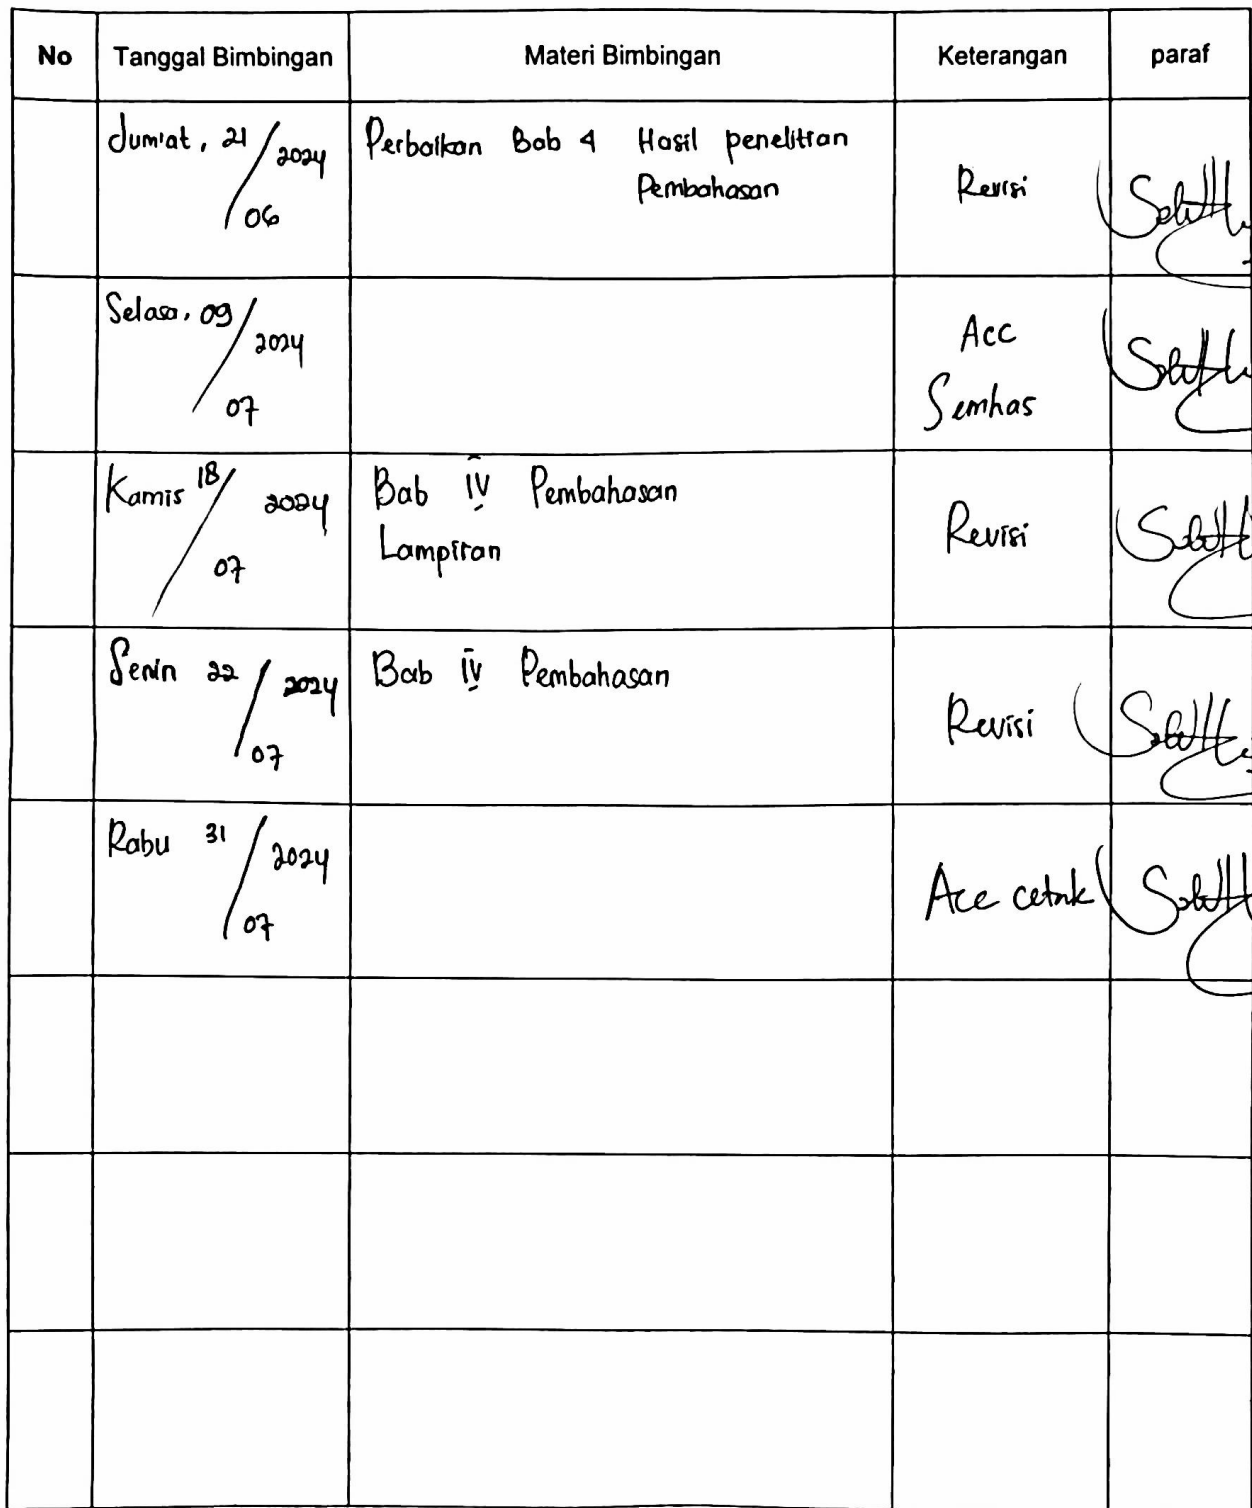 No Tanggal Bimbingan Materi Bimbingan Keterangan paraf
Jum'at, 21/06 2024 Perbaikan Bab 4 Hasil penelitian
Pembahasan
Revisi
Selasa, 09/07 2024
Acc
Semhas
Kamis 18/07 2024 Bab IV Pembahasan
Lampiran
Revisi
Senin 22/07 2024 Bab IV Pembahasan
Revisi
Rabu 31/07 2024
Acc cetak